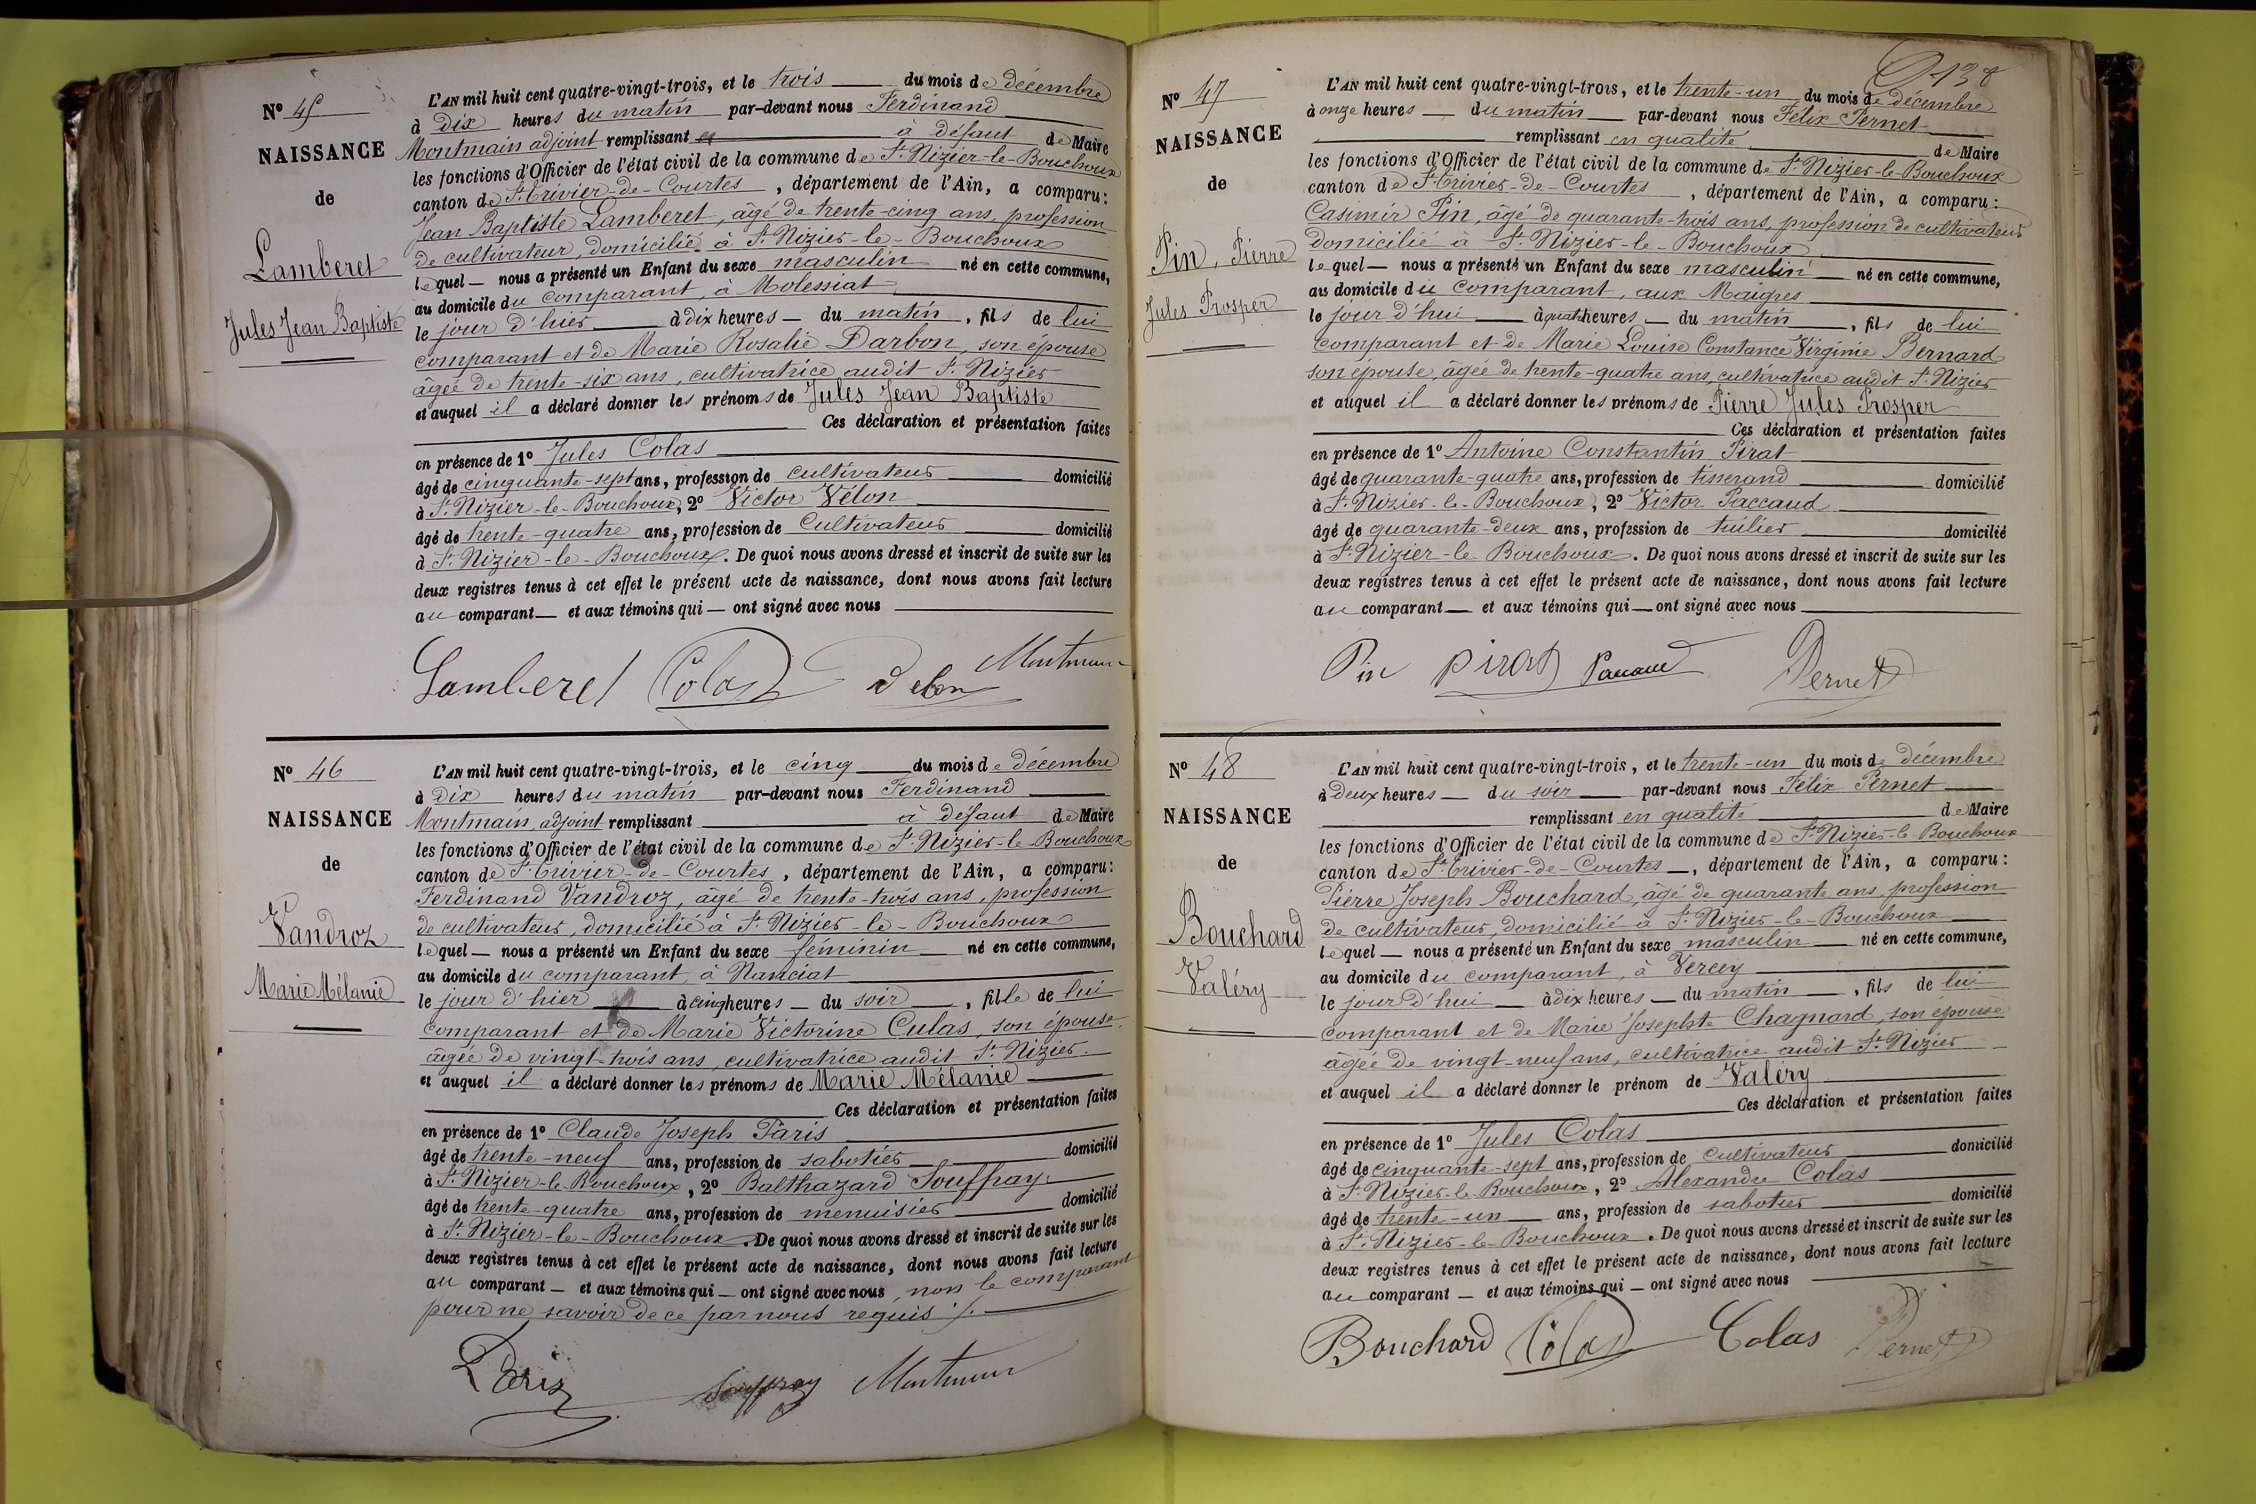 Nº 45
NAISSANCE
de
Lamberet
Jules Jean Baptiste
L'AN mil huit cent quatre-vingt-trois, et le trois du mois de décembre
à dix heures du matin par-devant nous Ferdinand
Montmain adjoint remplissant à défaut de Maire
les fonctions d'Officier de l'état civil de la commune de St Nizier-le-Bouchoux
canton de St Trivier-de-Courtes, département de l'Ain, a comparu:
Jean Baptiste Lamberet, âgé de trente-cinq ans, profession
de cultivateur, domicilié à St Nizier-le-Bouchoux
lequel — nous a présenté un Enfant du sexe masculin né en cette commune,
au domicile du comparant, à Molessiat
le jour d'hier à dix heures — du matin, fils de lui
comparant et de Marie Rosalie Darbon, son épouse
âgée de trente-six ans, cultivatrice audit St Nizier
et auquel il a déclaré donner les prénoms de Jules Jean Baptiste
Ces déclaration et présentation faites
en présence de 1º Jules Colas
âgé de cinquante-sept ans, profession de cultivateur domicilié
à St Nizier-le-Bouchoux, 2º Victor Vélon
âgé de trente-quatre ans, profession de Cultivateur domicilié
à St Nizier-le-Bouchoux. De quoi nous avons dressé et inscrit de suite sur les
deux registres tenus à cet effet le présent acte de naissance, dont nous avons fait lecture
au comparant — et aux témoins qui — ont signé avec nous
Lamberet Colas Velon Montmain
Nº 46
NAISSANCE
de
Vandroz
Marie Mélanie
L'AN mil huit cent quatre-vingt-trois, et le cinq du mois de décembre
à dix heures du matin par-devant nous Ferdinand
Montmain, adjoint remplissant à défaut de Maire
les fonctions d'Officier de l'état civil de la commune de St Nizier-le-Bouchoux
canton de St Trivier-de-Courtes, département de l'Ain, a comparu:
Ferdinand Vandroz, âgé de trente-trois ans, profession
de cultivateur, domicilié à St Nizier-le-Bouchoux
lequel — nous a présenté un Enfant du sexe féminin né en cette commune,
au domicile du comparant, à Nanciat
le jour d'hier à cinq heures — du soir, fille de lui
comparant et de Marie Victorine Culas, son épouse,
âgée de vingt-trois ans, cultivatrice audit St Nizier.
et auquel il a déclaré donner les prénoms de Marie Mélanie
Ces déclaration et présentation faites
en présence de 1º Claude Joseph Pâris
âgé de trente-neuf ans, profession de sabotier domicilié
à St Nizier-le-Bouchoux, 2º Balthazard Souffray
âgé de trente-quatre ans, profession de menuisier domicilié
à St Nizier-le-Bouchoux. De quoi nous avons dressé et inscrit de suite sur les
deux registres tenus à cet effet le présent acte de naissance, dont nous avons fait lecture
au comparant — et aux témoins qui — ont signé avec nous, non le comparant
pour ne savoir de ce par nous requis ./.
Pâris Souffray Montmain
138
Nº 47
NAISSANCE
de
Pin, Pierre
Jules Prosper
L'AN mil huit cent quatre-vingt-trois, et le trente-un du mois de décembre
à onze heures — du matin — par-devant nous Félix Pernet
remplissant en qualité de Maire
les fonctions d'Officier de l'état civil de la commune de St Nizier-le-Bouchoux
canton de St Trivier-de-Courtes, département de l'Ain, a comparu:
Casimir Pin, âgé de quarante-trois ans, profession de cultivateur
domicilié à St Nizier-le-Bouchoux
lequel — nous a présenté un Enfant du sexe masculin né en cette commune,
au domicile du comparant, aux Maigres
le jour d'hui à quatre heures — du matin, fils de lui
comparant et de Marie Louise Constance Virginie Bernard
son épouse, âgée de trente-quatre ans, cultivatrice audit St Nizier
et auquel il a déclaré donner les prénoms de Pierre Jules Prosper
Ces déclaration et présentation faites
en présence de 1º Antoine Constantin Pirat
âgé de quarante-quatre ans, profession de tisserand domicilié
à St Nizier-le-Bouchoux, 2º Victor Paccaud
âgé de quarante-deux ans, profession de tuilier domicilié
à St Nizier-le-Bouchoux. De quoi nous avons dressé et inscrit de suite sur les
deux registres tenus à cet effet le présent acte de naissance, dont nous avons fait lecture
au comparant — et aux témoins qui — ont signé avec nous
Pin pirat Paccaud Pernet
Nº 48
NAISSANCE
de
Bouchard
Valéry
L'AN mil huit cent quatre-vingt-trois, et le trente-un du mois de décembre
à deux heures — du soir — par-devant nous Félix Pernet
remplissant en qualité de Maire
les fonctions d'Officier de l'état civil de la commune de St Nizier-le-Bouchoux
canton de St Trivier-de-Courtes —, département de l'Ain, a comparu:
Pierre Joseph Bouchard, âgé de quarante ans, profession
de cultivateur, domicilié à St Nizier-le-Bouchoux
lequel — nous a présenté un Enfant du sexe masculin né en cette commune,
au domicile du comparant, à Vercey
le jour d'hui à dix heures — du matin, fils de lui
comparant et de Marie Josephte Chagnard, son épouse
âgée de vingt-neuf ans, cultivatrice audit St Nizier
et auquel il a déclaré donner le prénom de Valéry
Ces déclaration et présentation faites
en présence de 1º Jules Colas
âgé de cinquante-sept ans, profession de cultivateur domicilié
à St Nizier-le-Bouchoux, 2º Alexandre Colas
âgé de trente-un ans, profession de sabotier domicilié
à St Nizier-le-Bouchoux. De quoi nous avons dressé et inscrit de suite sur les
deux registres tenus à cet effet le présent acte de naissance, dont nous avons fait lecture
au comparant — et aux témoins qui — ont signé avec nous
Bouchard Colas Colas Pernet